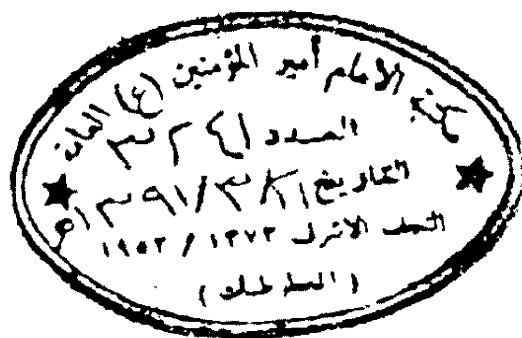 مكتبة الأمام أمير المؤمنين (ع) العامة
العدد
التاريخ ١١/٣/١٣٩١هـ
النجف الاشرف ١٣٧٣ / ١٩٥٣